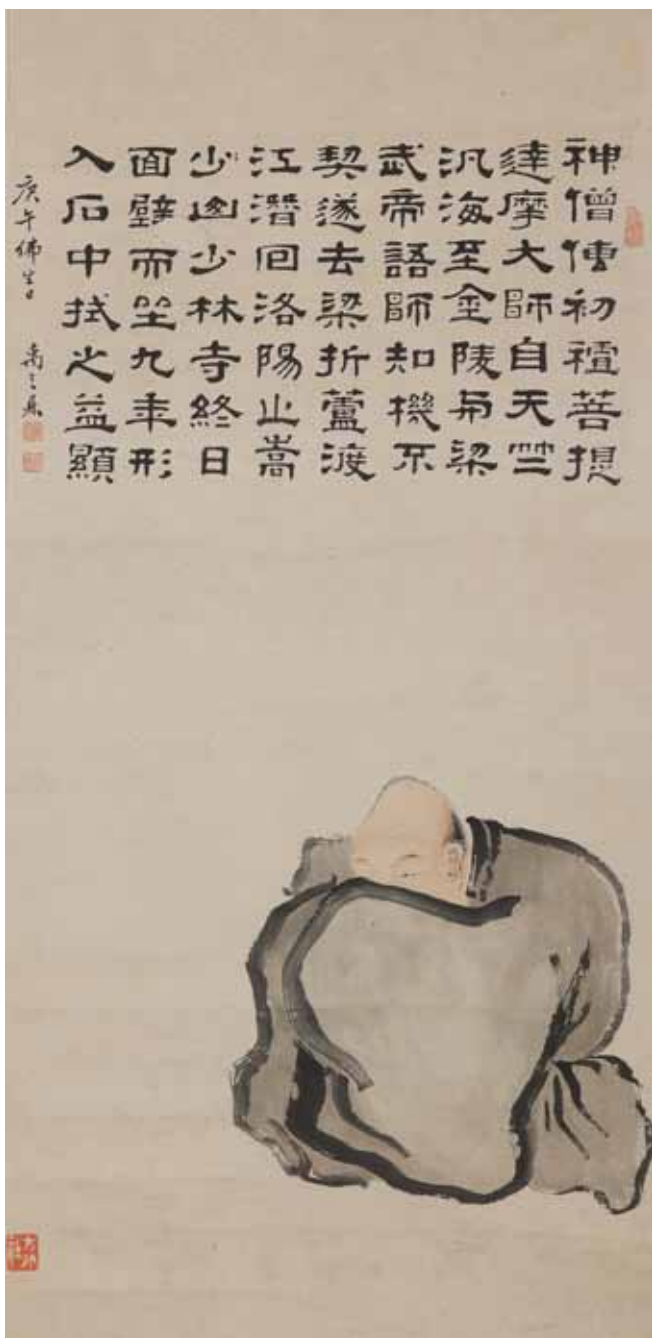 神僧傳初祖菩提
達摩大師自天竺
汎海至金陵与梁
武帝語師知機不
契遂去梁折蘆渡
江潛回洛陽止嵩
少山少林寺終日
面壁而坐九年形
入石中拭之益顯
庚午佛生日 禹之鼎